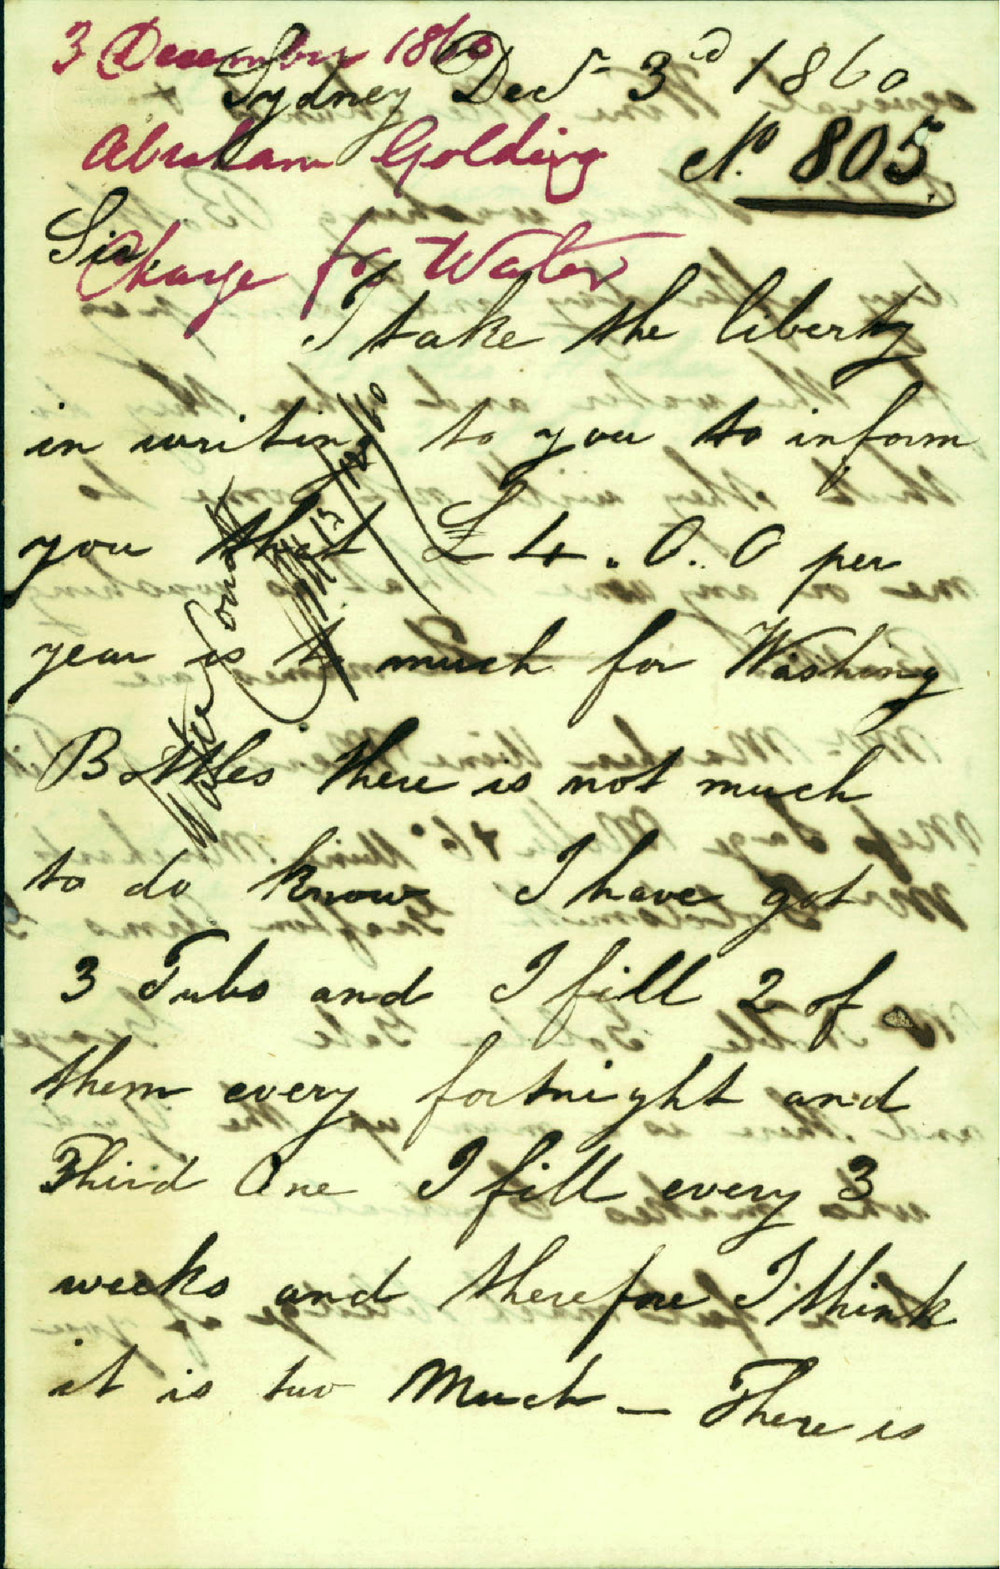 3 December 1860
Sydney Decr 3rd 1860
Abraham Golding No. 805
Sir
Charge for Water
I take the liberty
in writing to you to inform
you that £4.0.0 per
year is to much for Washing
Bottles there is not much
to do know I have got
3 Tubs and I fill 2 of
them every fortnight and
Third One I fill every 3
weeks and therefore I think
it is two Much — There is
Water Comtt
13/12/60